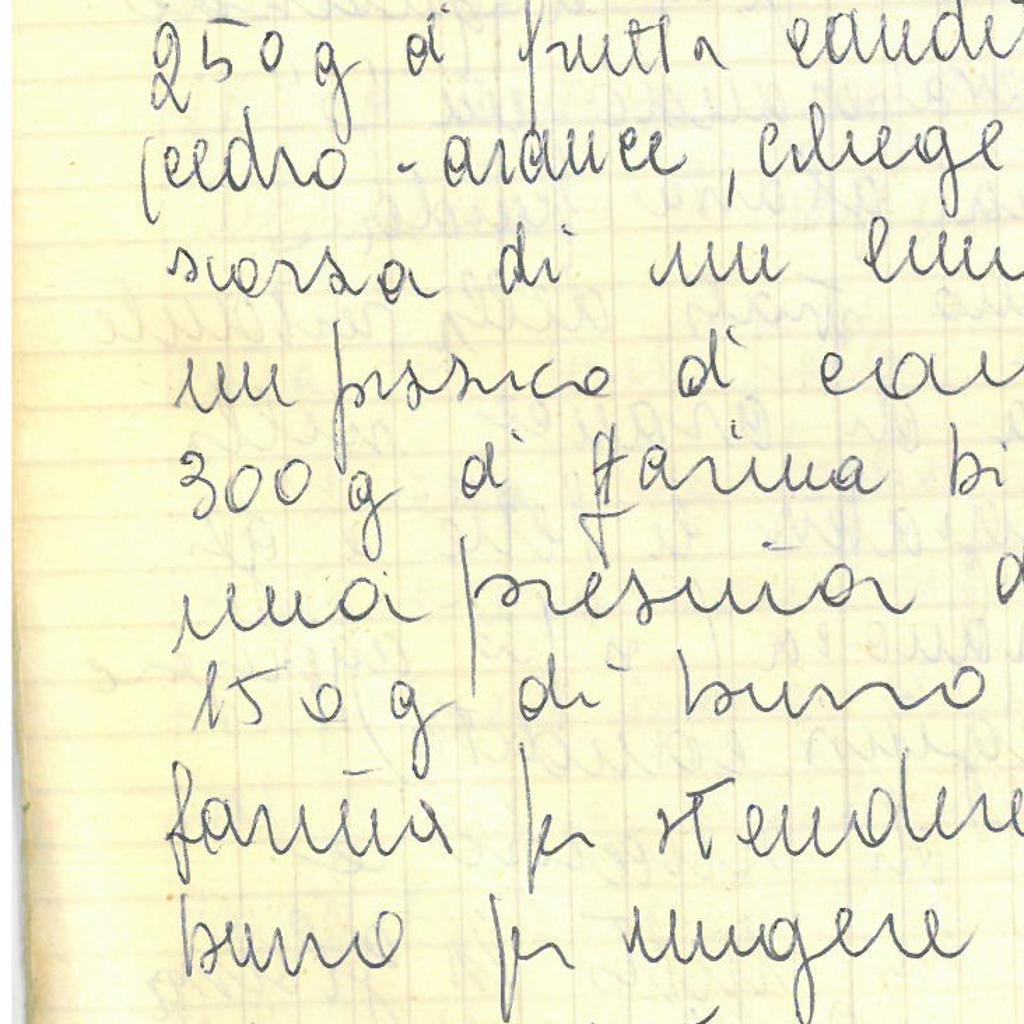 250 g di frutta candit
(cedro - arance, ciliege
scorza di un lim
un pizzico di can
300 g di farina bi
una presina d
150 g di burro
farina per stendere
burro per ungere